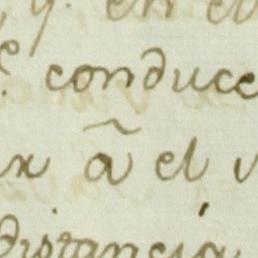 q. en el
conduce
x ã el
distancia